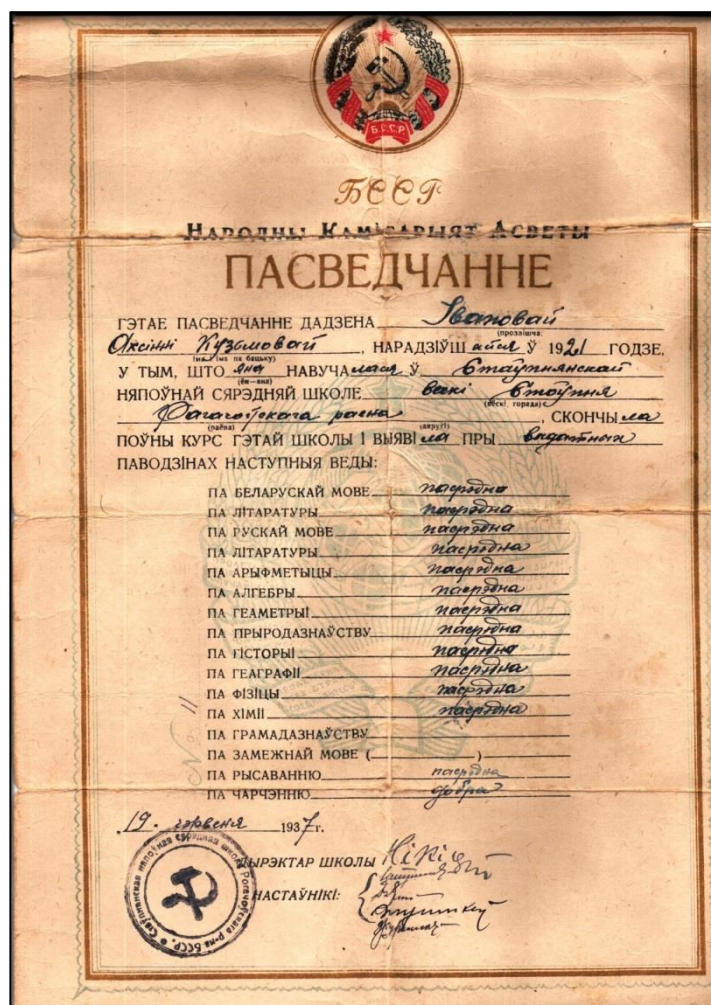 Б.С.С.Р.
БССР
НАРОДНЫ КАМІСАРЫЯТ АСВЕТЫ
ПАСВЕДЧАННЕ
ГЭТАЕ ПАСВЕДЧАННЕ ДАДЗЕНА Івановай
(прозвішча,
Оксінні Кузьмовай, НАРАДЗІЎШ айся Ў 1921 ГОДЗЕ,
імя, імя па бацьку)
У ТЫМ, ШТО яна НАВУЧА лася Ў Стаўпнянскай
(ён—яна)
НЯПОЎНАЙ СЯРЭДНЯЙ ШКОЛЕ вёскі Стоўпня
(вёскі, горада)
Рагачоўскага раёна, СКОНЧЫ ла
(раёна) (акругі)
ПОЎНЫ КУРС ГЭТАЙ ШКОЛЫ І ВЫЯВІ ла ПРЫ выдатных
ПАВОДЗІНАХ НАСТУПНЫЯ ВЕДЫ:
ПА БЕЛАРУСКАЙ МОВЕ пасрэдна
ПА ЛІТАРАТУРЫ пасрэдна
ПА РУСКАЙ МОВЕ пасрэдна
ПА ЛІТАРАТУРЫ пасрэдна
ПА АРЫФМЕТЫЦЫ пасрэдна
ПА АЛГЕБРЫ пасрэдна
ПА ГЕАМЕТРЫІ пасрэдна
ПА ПРЫРОДАЗНАЎСТВУ пасрэдна
ПА ГІСТОРЫІ пасрэдна
ПА ГЕАГРАФІІ пасрэдна
ПА ФІЗІЦЫ пасрэдна
ПА ХІМІІ пасрэдна
ПА ГРАМАДАЗНАЎСТВУ
ПА ЗАМЕЖНАЙ МОВЕ ( )
ПА РЫСАВАННЮ пасрэдна
ПА ЧАРЧЭННЮ добра
№ 11
19. чэрвеня 1937 г.
ДЫРЭКТАР ШКОЛЫ
НАСТАЎНІКІ: